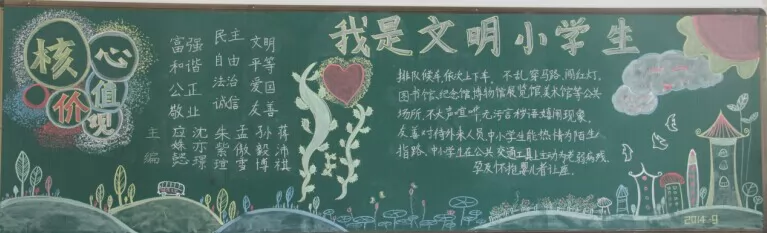 核心价值观
富强 民主 文明
和谐 自由 平等
公正 法治 爱国
敬业 诚信 友善
主编
沈亦璟
我是文明小学生
排队候车,依次上下车,不乱穿马路,闯红灯,
图书馆、纪念馆、博物馆、展览馆、美术馆等公共
场所,不大声喧哗,无污言秽语嬉闹现象,
友善对待外来人员,中小学生能热情为陌生人
指路、中小学生在公共交通工具上主动为老弱病残、
孕及怀抱婴儿者让座。
2014.9